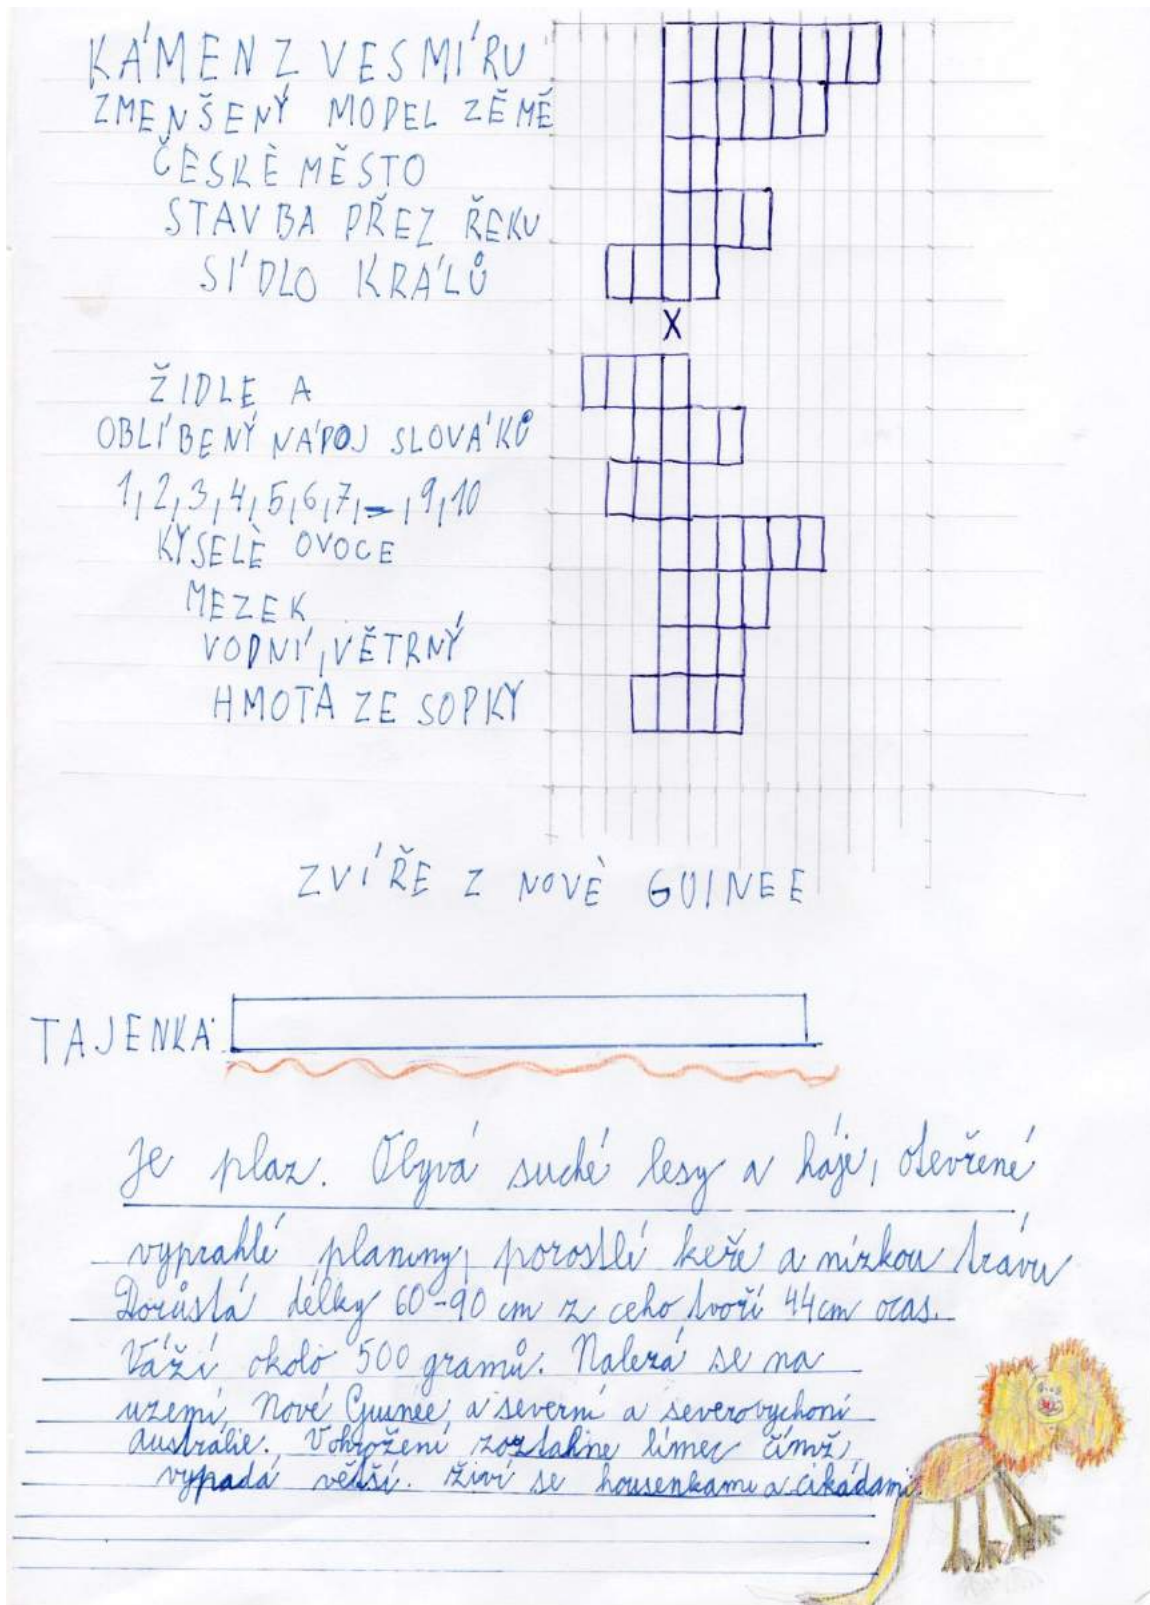 KÁMEN Z VESMÍRU
ZMENŠENÝ MODEL ZĚMĚ
ČESKÉ MĚSTO
STAVBA PŘEZ ŘEKU
SÍDLO KRÁLŮ
X
ŽIDLE A
OBLÍBENÝ NÁPOJ SLOVÁKŮ
1,2,3,4,5,6,7,-,9,10
KYSELÉ OVOCE
MEZEK
VODNÍ, VĚTRNÝ
HMOTA ZE SOPKY
ZVÍŘE Z NOVÉ GUINEE
TAJENKA:
Je plaz. Obývá suché lesy a háje, otevřené
vyprahlé planiny, porostlé keře a nízkou trávu
Dorůstá délky 60-90 cm z ceho tvoří 44cm ocas.
Váží okolo 500 gramů. Nalezá se na
uzemí, Nové Guinee, a severní a severovychoní
Austrálie. V ohrožení roztahne límec čímž,
vypadá větší. Živí se housenkami a cikádami